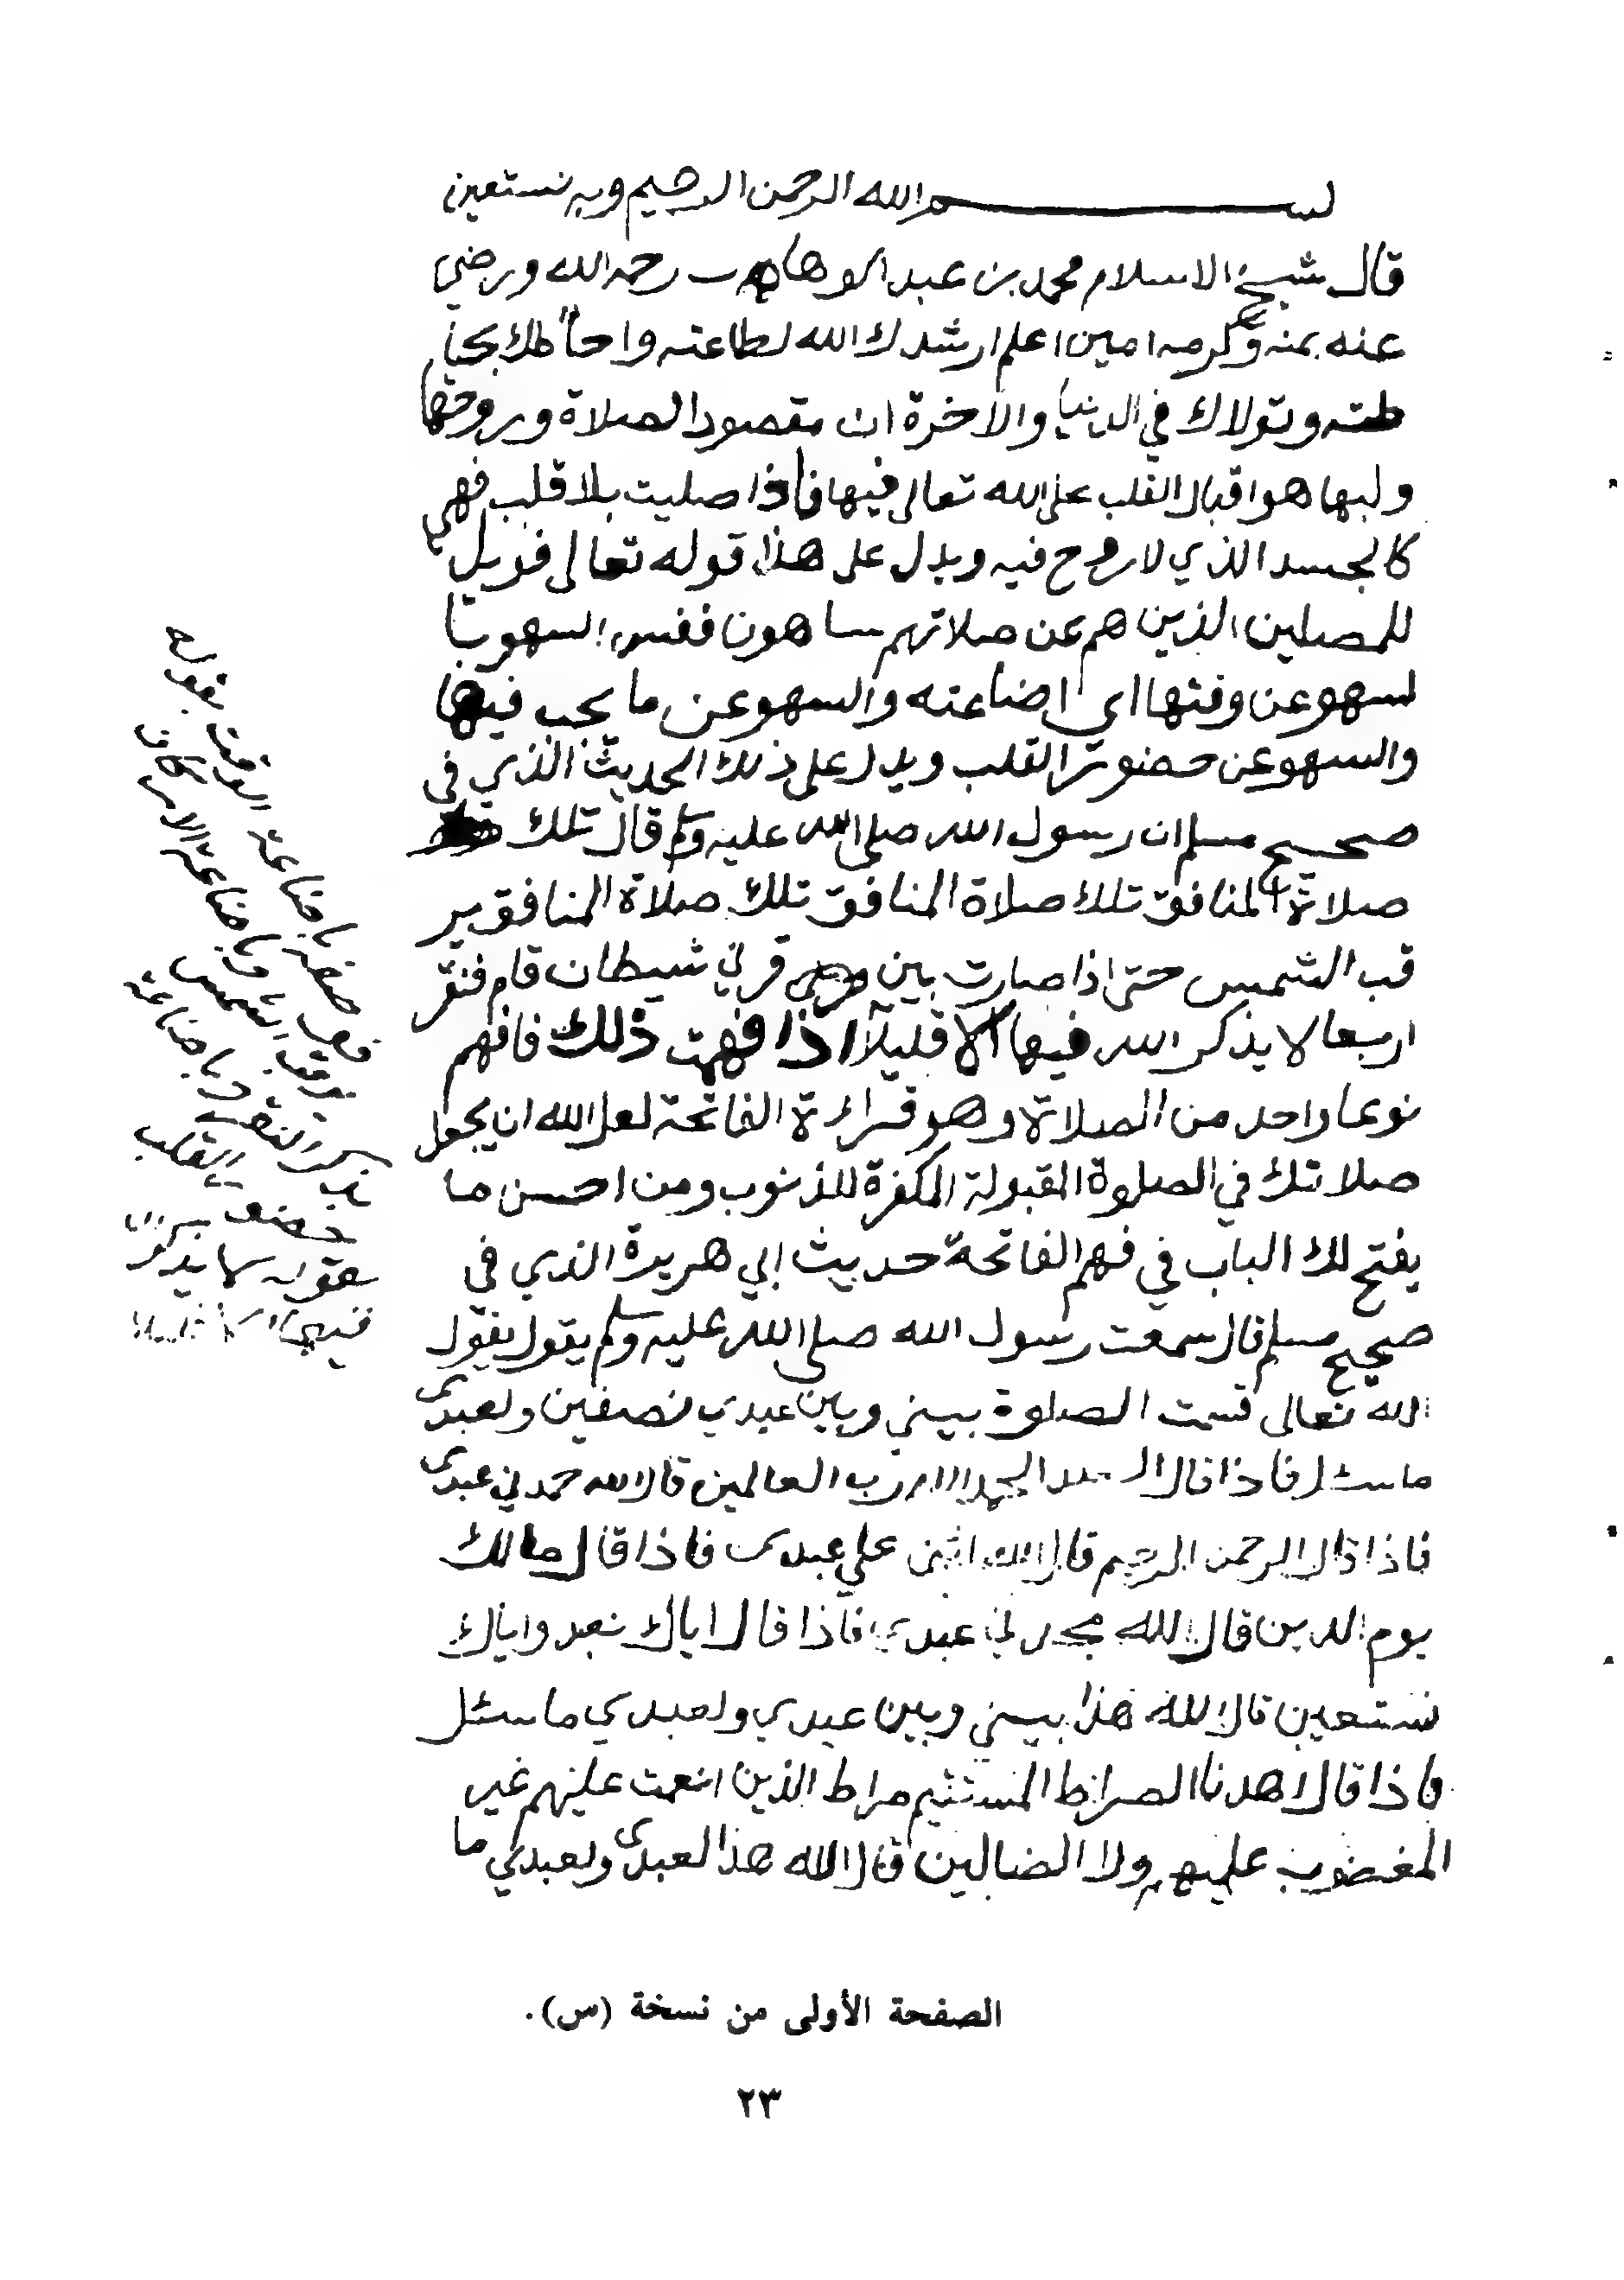 بسم الله الرحمن الرحيم وبه نستعين
قال شيخ الاسلام محمد بن عبد الوهاب رحمه الله ورضي
عنه بمنه وكرمه امين اعلم ارشدك الله لطاعته واحاطك بحيا
طته وتولاك في الدنيا والاخرة ان مقصود الصلاة وروحها
ولبها هو اقبال القلب على الله تعالى فيها فاذا صليت بلا قلب فهي
كالجسد الذي لا روح فيه ويدل على هذا قوله تعالى فويل
للمصلين الذين هم عن صلاتهم ساهون ففسر السهو با
لسهو عن وقتها اي اضاعته والسهو عن ما يجب فيها
والسهو عن حضور القلب ويدل على ذلك الحديث الذي في
صحيح مسلم ان رسول الله صلى الله عليه وسلم قال تلك
صلاة المنافق تلك صلاة المنافق تلك صلاة المنافق ير
قب الشمس حتى اذا صارت بين قرني شيطان قام فنقر
اربعا لا يذكر الله فيها الا قليلا اذا فهمت ذلك فافهم
نوعا واحد من الصلاة وهو قراءة الفاتحة لعل الله ان يجعل
صلاتك في الصلوة المقبولة المكفرة للذنوب ومن احسن ما
يفتح لك الباب في فهم الفاتحة حديث ابي هريرة الذي في
صحيح مسلم قال سمعت رسول الله صلى الله عليه وسلم يقول يقول
الله تعالى قسمت الصلوة بيني وبين عبدي نصفين ولعبدي
ما سئل فاذا قال الحمد لله رب العالمين قال الله حمدني عبدي
فاذا قال الرحمن الرحيم قال الله اثنى علي عبدي فاذا قال مالك
يوم الدين قال الله مجدني عبدي فاذا قال اياك نعبد واياك
نستعين قال الله هذا بيني وبين عبدي ولعبدي ما سئل
فاذا قال اهدنا الصراط المستقيم صراط الذين انعمت عليهم غير
المغضوب عليهم ولا الضالين قال الله هذا لعبدي ولعبدي ما
فوصفه باضاعة الوقت بقوله
يرقب الشمس وباضاعة الاركان
بذكر النقر وباضاعة
حضور القلب
بقوله لا يذكر الله
فيها الا قليلا
الصفحة الأولى من نسخة (س).
٢٣